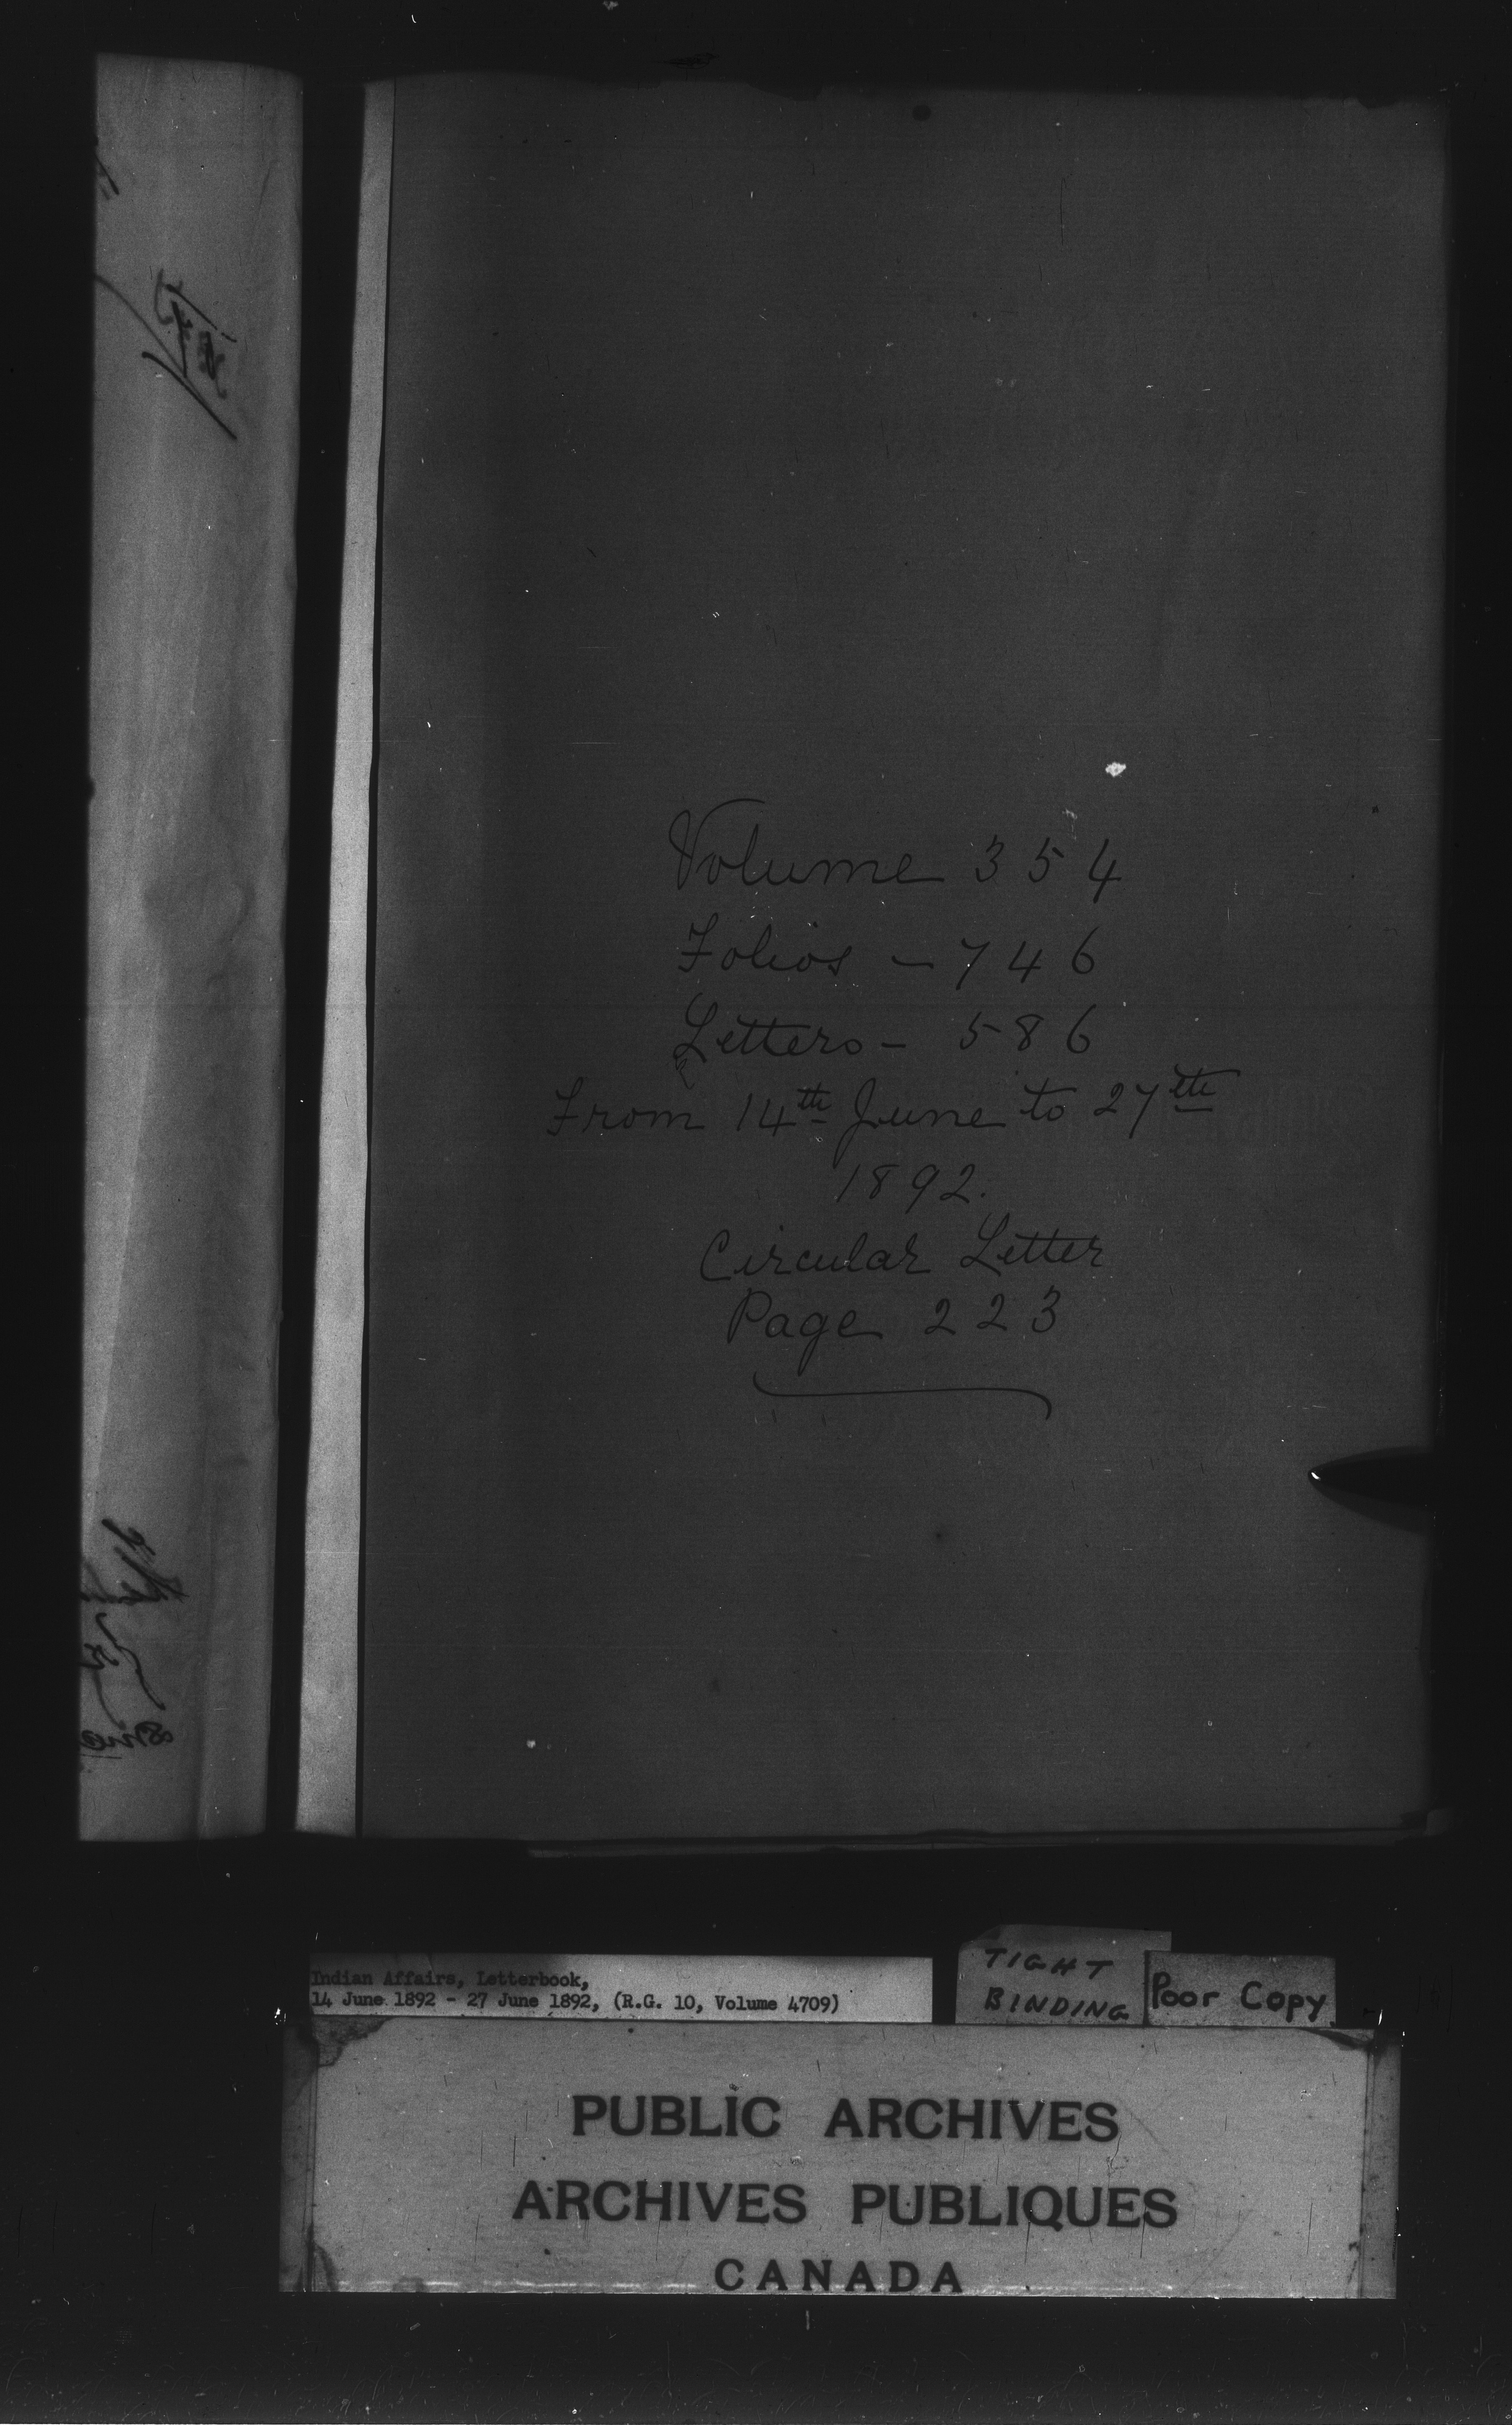 Volume 354
Folios - 746
Letters - 586
From 14th June to 27th
1892.
Circular Letter
Page 223
Indian Affairs, Letterbook,
14 June 1892 - 27 June 1892, (R.G. 10, Volume 4709)
TIGHT
BINDING
Poor Copy
PUBLIC ARCHIVES
ARCHIVES PUBLIQUES
CANADA